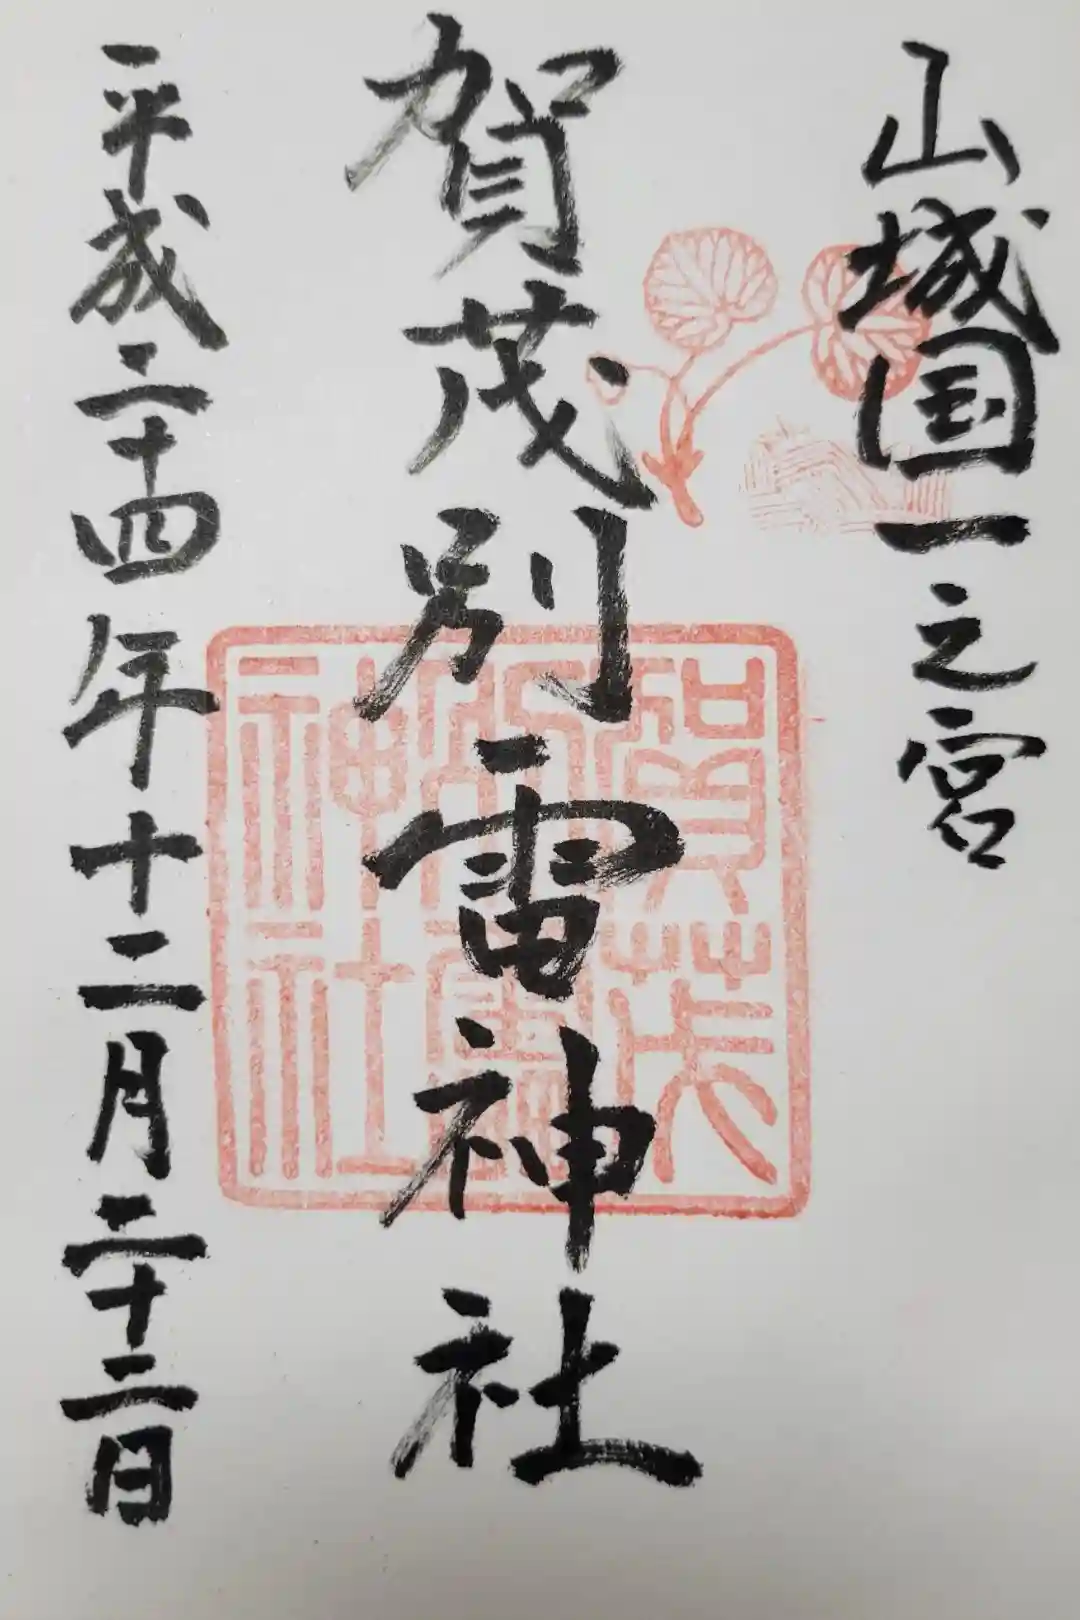 山城国一之宮
賀茂別雷神社
平成二十四年十二月二十二日
賀茂別雷神社